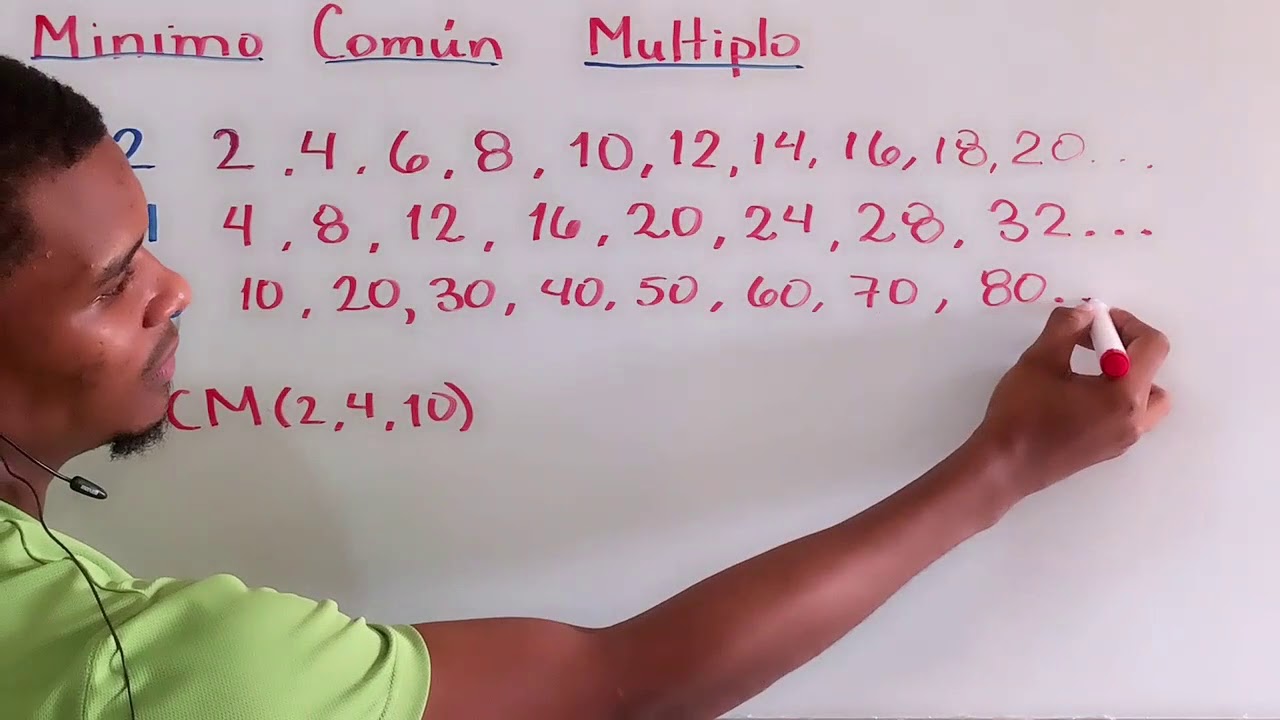 Minimo Común Multiplo
2 2, 4, 6, 8, 10, 12, 14, 16, 18, 20...
4, 8, 12, 16, 20, 24, 28, 32...
10, 20, 30, 40, 50, 60, 70, 80..
CM(2,4,10)